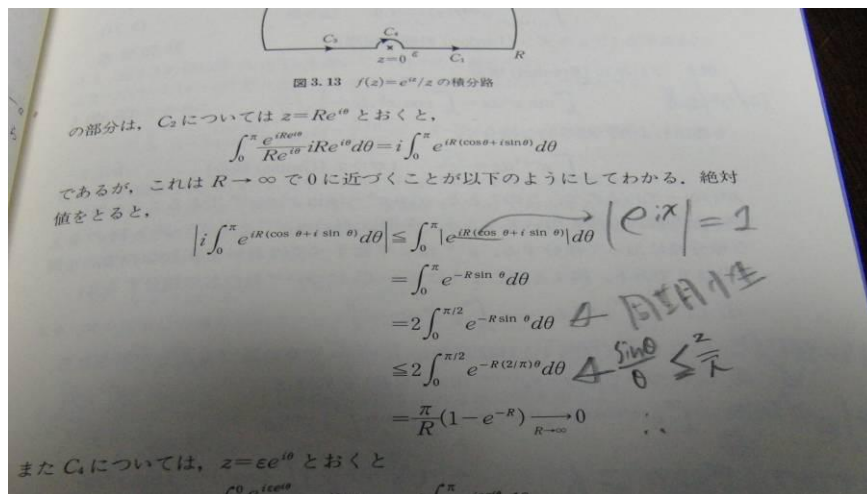 C₅ C₄ ε C₁
z=0 R
図3.13 f(z)=e^{iz}/zの積分路
の部分は，C₂については z=Re^{iθ} とおくと，
∫₀^π e^{iRe^{iθ}}/Re^{iθ} iRe^{iθ}dθ=i∫₀^π e^{iR(cosθ+isinθ)}dθ
であるが，これは R→∞ で0に近づくことが以下のようにしてわかる．絶対
値をとると，
|i∫₀^π e^{iR(cos θ+i sin θ)}dθ|≦∫₀^π|e^{iR(cos θ+i sin θ)}|dθ |e^{ix}|=1
=∫₀^π e^{-Rsin θ}dθ
=2∫₀^{π/2} e^{-Rsin θ}dθ ← 周期性
≦2∫₀^{π/2} e^{-R(2/π)θ}dθ ← sinθ/θ ≦ 2/π
=π/R(1-e^{-R}) →_{R→∞} 0 ∴
また C₄については，z=εe^{iθ} とおくと